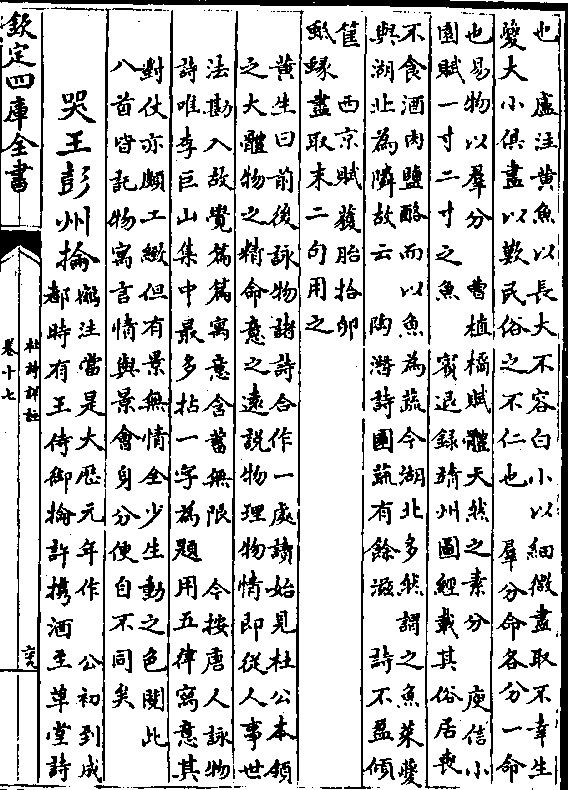 也 盧注黄魚以長大不容白小以細微盡取不幸生
夔大小俱盡以歎民俗之不仁也 羣分命各分一命
也易物以羣分 曹植橘賦體天然之素分 庾信小
園賦一寸二寸之魚 賓退録靖州圖經載其俗居喪
不食酒肉鹽酪而以魚為蔬今湖北多然謂之魚菜夔
與湖北為隣故云 陶潜詩園蔬有餘滋 詩不盈傾
筐 西京賦獲胎拾卵
蚳蝝盡取末二句用之
黄生曰前後詠物諸詩合作一處讀始見杜公本領
之大體物之精命意之遠說物理物情即從人事世
法勘入故覺篇篇寓意含蓄無限 今按唐人詠物
詩唯李巨山集中最多拈一字為題用五律寫意其
對仗亦頗工緻但有景無情全少生動之色閱此
八首皆託物寓言情與景會身分便自不同矣
哭王彭州掄
鶴注當是大厯元年作 公初到成
都時有王侍御掄許携酒至草堂詩
欽定四庫全書
杜詩詳註
卷十七